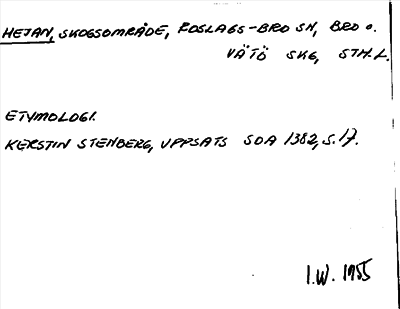 HEJAN, SKOGSOMRÅDE, ROSLAGS-BRO SN, BRO O.
VÄTÖ SKG, STH.L.
ETYMOLOGI.
KERSTIN STENBERG, UPPSATS SOA 1382, S.17.
I.W. 1955